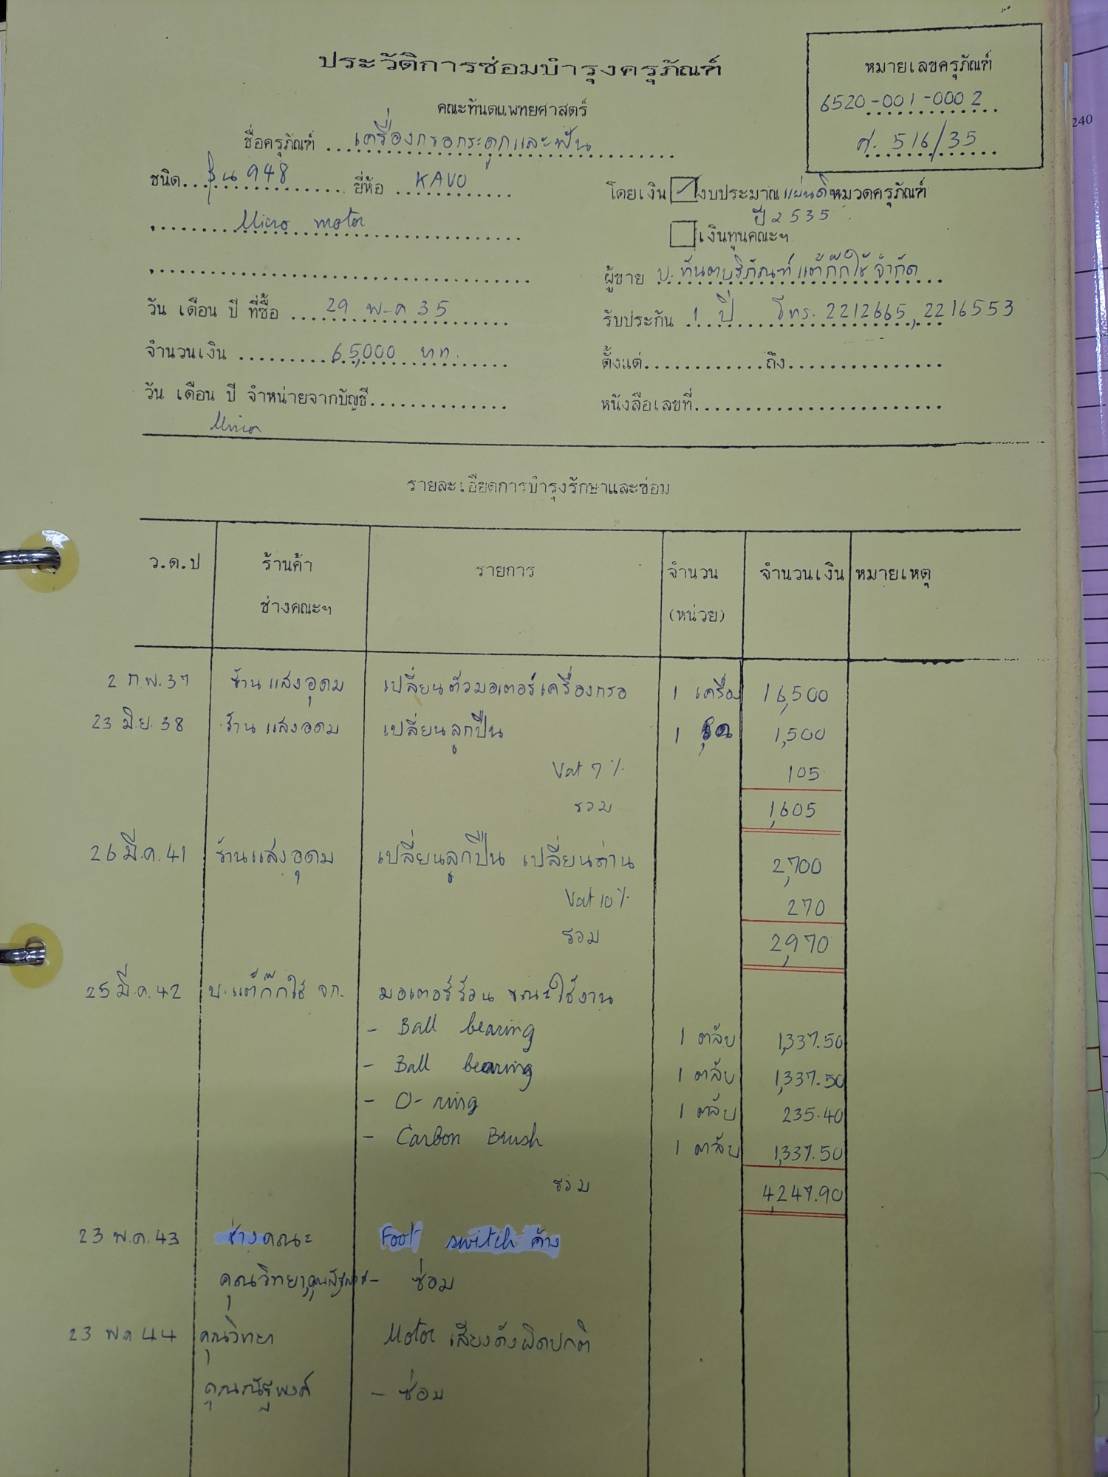 ประวัติการซ่อมบำรุงครุภัณฑ์
คณะทันตแพทยศาสตร์
หมายเลขครุภัณฑ์
6520-001-0002
ศ. 516/35
240
ชื่อครุภัณฑ์ เครื่องกรอกระดูกและฟัน
ชนิด รุ่น 948 ยี่ห้อ KAVO
Micro motor
โดยเงิน งบประมาณแผ่นดินหมวดครุภัณฑ์
ปี 2535
เงินทุนคณะฯ
ผู้ขาย บ. ทันตบริภัณฑ์ แต้กั๊กใช้ จำกัด
วัน เดือน ปี ที่ซื้อ 29 พ.ค 35
รับประกัน 1 ปี โทร. 2212665, 2216553
จำนวนเงิน 65,000 บาท.
ตั้งแต่ ถึง
วัน เดือน ปี จำหน่ายจากบัญชี
หนังสือเลขที่
Micro
รายละเอียดการบำรุงรักษาและซ่อม
ว.ด.ป ร้านค้า รายการ จำนวน จำนวนเงิน หมายเหตุ
ช่างคณะฯ (หน่วย)
2 ก.พ. 37 ร้าน แสงอุดม เปลี่ยนตัวมอเตอร์เครื่องกรอ 1 เครื่อง 16,500
23 มิ.ย. 38 ร้าน แสงอุดม เปลี่ยนลูกปืน 1 ชุด 1,500
Vat 7% 105
รวม 1,605
26 มี.ค. 41 ร้านแสงอุดม เปลี่ยนลูกปืน เปลี่ยนถ่าน 2,700
Vat 10% 270
รวม 2,970
25 มี.ค. 42 บ.แต้กั๊กใช้ จก. มอเตอร์ร้อน ขณะใช้งาน
- Ball bearing 1 ตลับ 1,337.50
- Ball bearing 1 ตลับ 1,337.50
- O-ring 1 ตลับ 235.40
- Carbon Brush 1 ตลับ 1,337.50
รวม 4,247.90
23 พ.ค. 43 ช่างคณะ Foot switch ค้าง
คุณวิทยา - ซ่อม
23 พ.ค 44 คุณวิทยา Motor เสียงดังผิดปกติ
คุณณัฐพงศ์ - ซ่อม